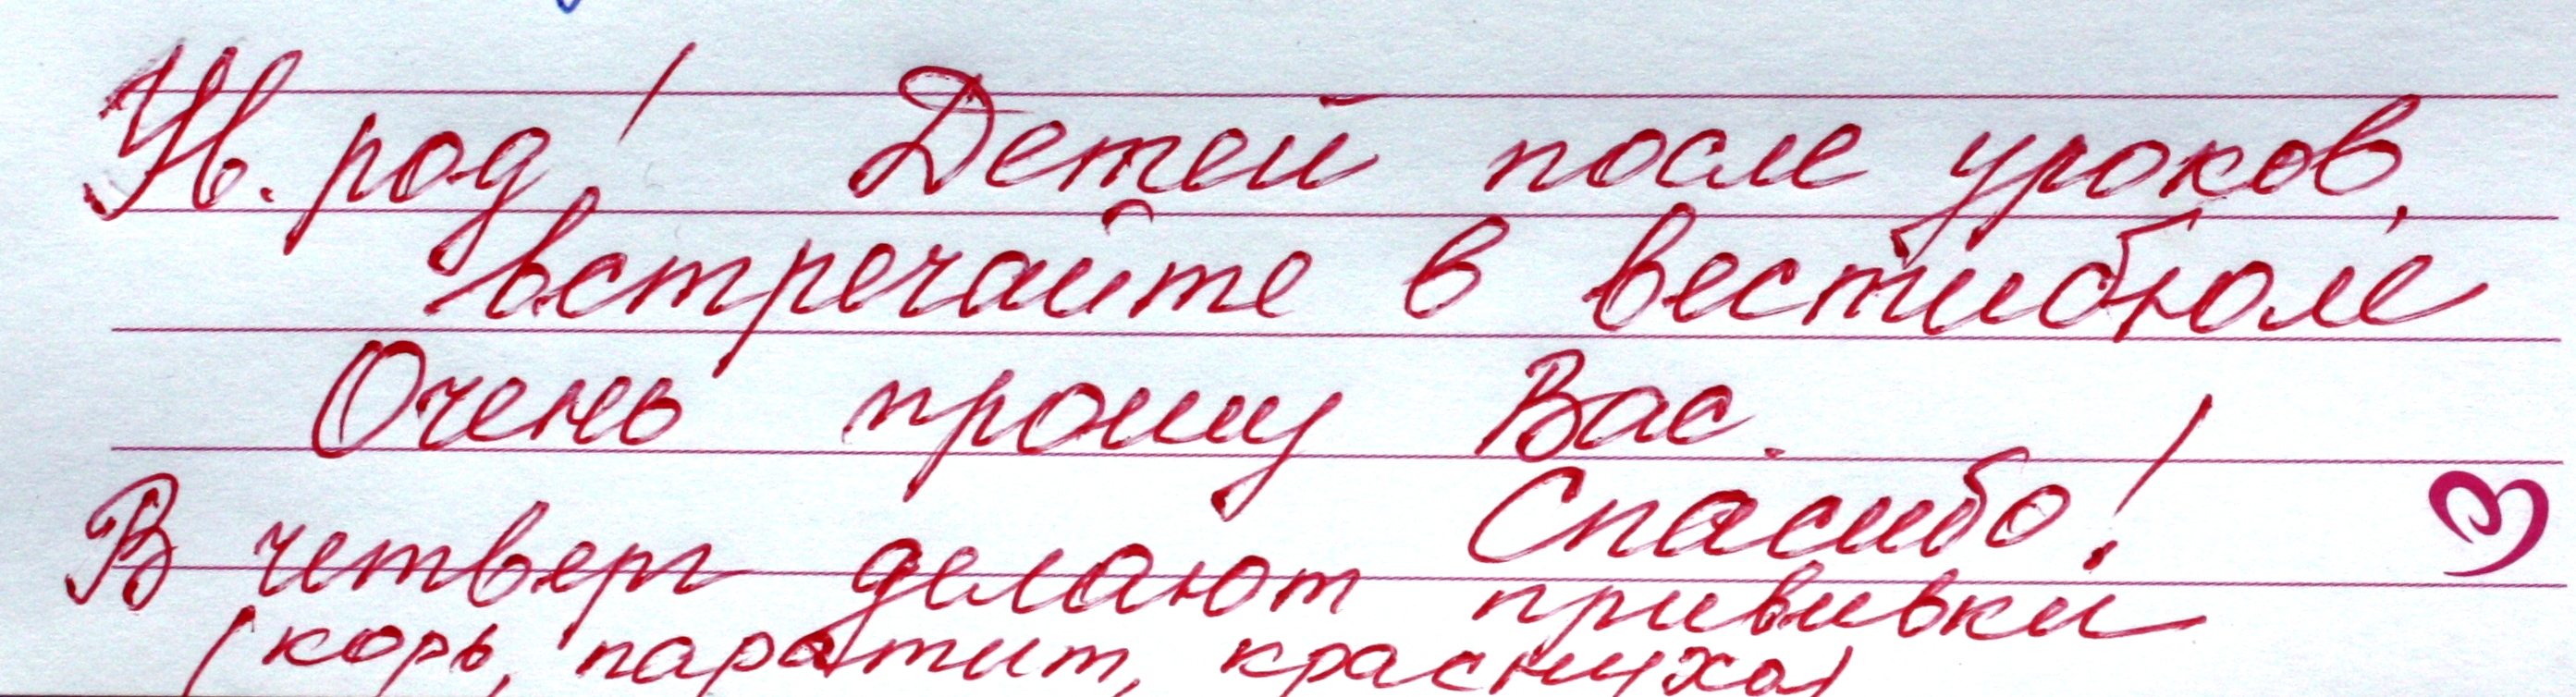 Ув. род! Детей после уроков,
встречайте в вестибюле
Очень прошу Вас.
Спасибо!
В четверг делают прививки
(корь, паротит, краснуха)